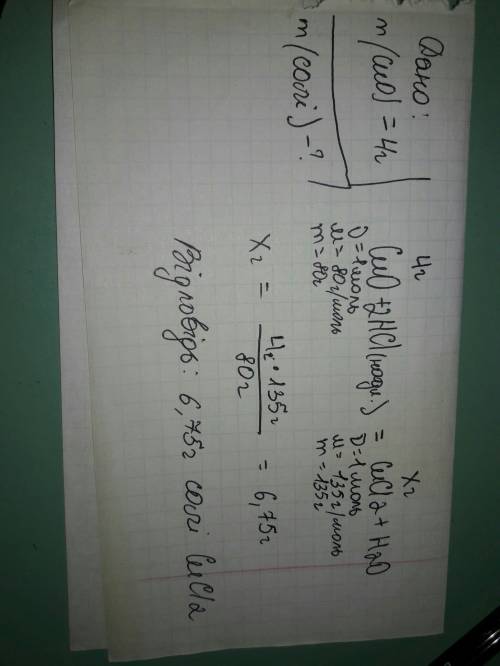 Дано:
m(CuO) = 4г
m(солі) - ?
4г Xг
CuO + 2HCl(надл.) = CuCl2 + H2O
ν = 1моль ν = 1моль
M = 80г/моль M = 135г/моль
m = 80г m = 135г
Xг = 4г · 135г / 80г = 6,75г
Відповідь: 6,75г солі CuCl2